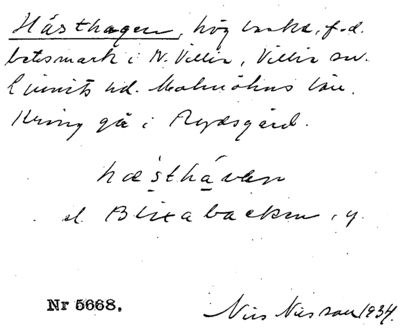 Hästhagen, hög backe, f.d.
betesmark i N. Villie, Villie sn.
Ljunits hd. Malmöhus län.
Kring gå i Rydsgård.
hæsthāven
el. Blixabacken, y.
Nr 5668.
Nils Nilsson 1934.